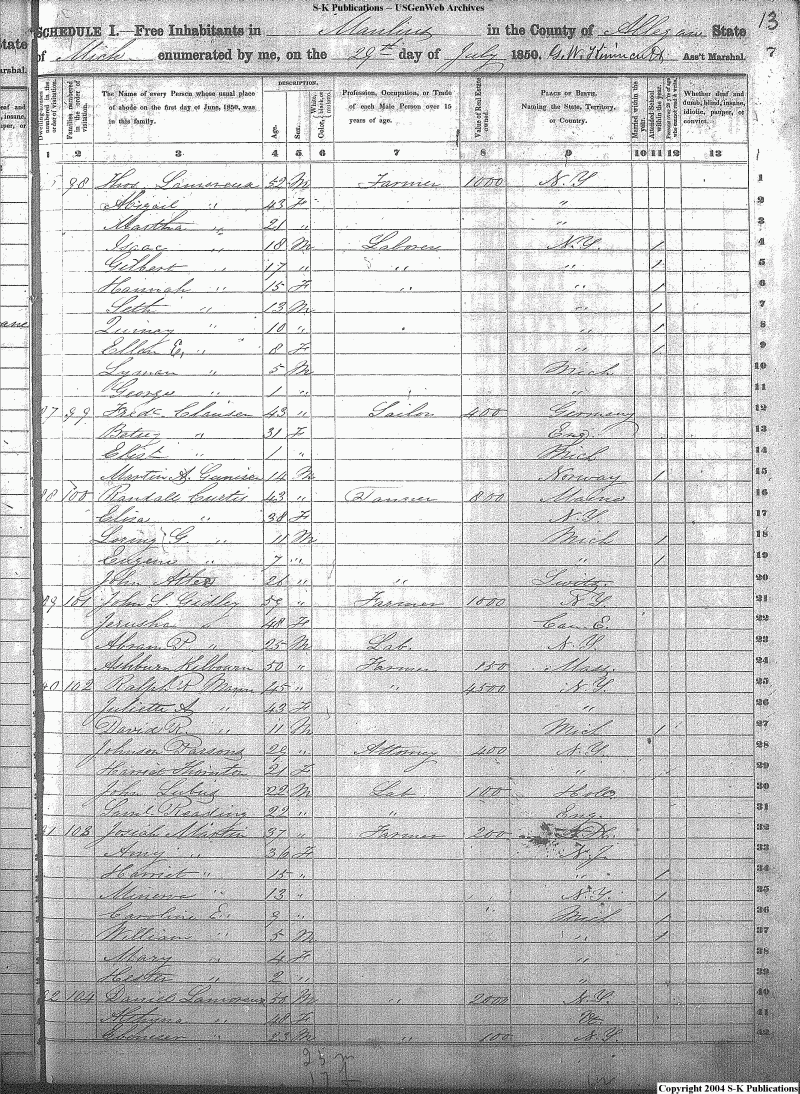 S-K Publications – USGenWeb Archives
13
SCHEDULE I.—Free Inhabitants in Manlius in the County of Allegan State
of Mich enumerated by me, on the 29th day of July 1850. Ass't Marshal. 7
DESCRIPTION.
Dwelling-houses numbered in the order of visitation.
Families numbered in the order of visitation.
The Name of every Person whose usual place of abode on the first day of June, 1850, was in this family.
Age.
Sex.
Color, White, black, or mulatto.
Profession, Occupation, or Trade of each Male Person over 15 years of age.
Value of Real Estate owned.
PLACE OF BIRTH. Naming the State, Territory, or Country.
Married within the year.
Attended School within the year.
Persons over 20 y'rs of age who cannot read & write.
Whether deaf and dumb, blind, insane, idiotic, pauper, or convict.
1 2 3 4 5 6 7 8 9 10 11 12 13
98 Thos Lamoreux 52 M Farmer 1000 N.Y. 1
Abigail " 43 F " 2
Martha " 21 " " 3
Isaac " 18 M Laborer N.Y. / 4
Gilbert " 17 " " " / 5
Hannah " 15 F " " / 6
Seth " 13 M " / 7
Quincy " 10 " " / 8
Ellen E. " 8 F " / 9
Lyman " 5 M Mich 10
George " 1 " " 11
99 Fredc Clausen 43 " Sailor 400 Germany 12
Betsey " 31 F Eng. 13
" 1 " Mich 14
Martin A. 14 M Norway / 15
100 Randall Curtis 43 " Tanner 800 Maine 16
Eliza " 38 F N.Y. 17
Loring G. " 11 M Mich / 18
Eugene " 7 " " / 19
John 26 " " Switz. 20
101 John L. Gidley 59 " Farmer 1000 N.Y. 21
Jerusha " 48 F Can. E. 22
Abram P. " 25 M Lab. N.Y. 23
Ashburn Kilbourn 50 " Farmer 150 Mass. 24
102 Ralph R. Mann 45 " " 4500 N.Y. 25
Juliette A. " 43 F " 26
David R. " 11 M Mich / 27
Johnson Parsons 29 " Attorney 400 N.Y. 28
Harriet Thornton 21 F " 29
John Lubus 22 M Lab 100 Hols 30
Saml. Reading 22 " " Eng. 31
103 Josiah Martin 37 " Farmer 200 32
Amy " 36 F N.J. 33
Harriet " 15 " " / 34
Minerva " 13 " N.Y. / 35
Caroline E. " 9 " Mich / 36
William " 5 M " / 37
Mary " 4 F " 38
Hester " 2 " " 39
104 Daniel Lamoreux 50 M " 2000 N.Y. 40
" 48 F Vt. 41
Ebenezer " 23 M " 100 N.Y. 42
Copyright 2004 S-K Publications